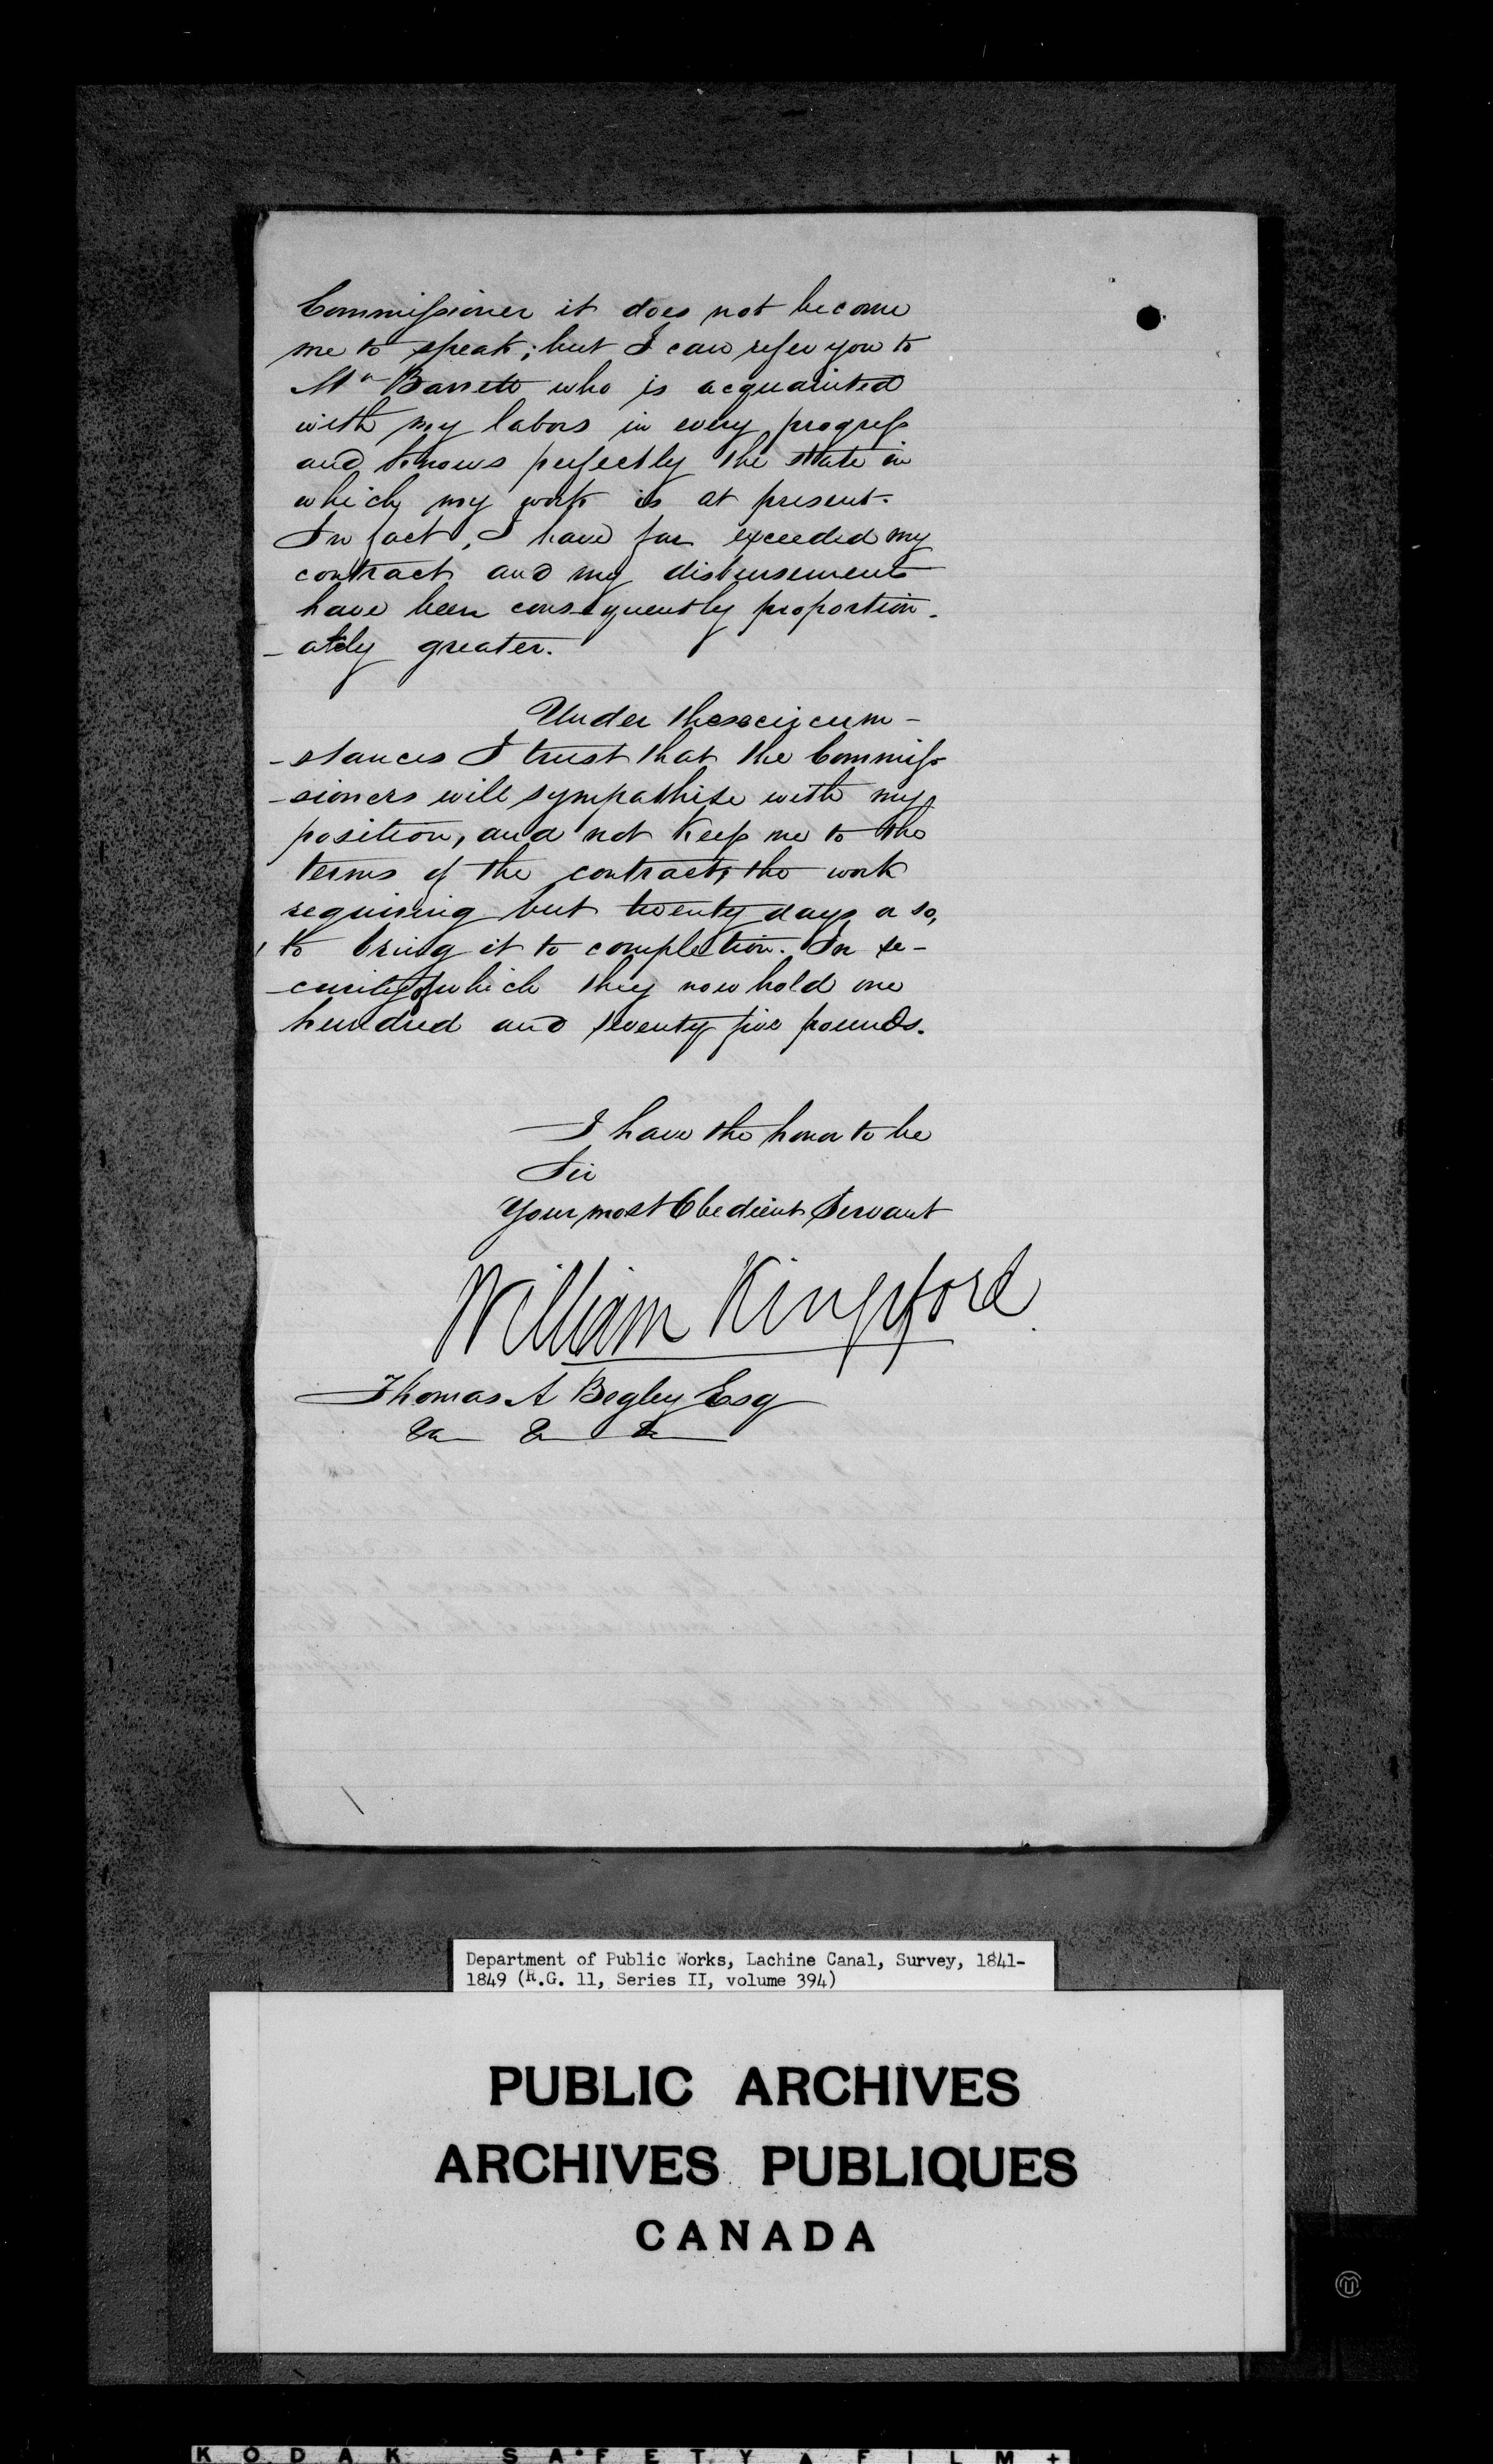 Commissioner it does not become
me to speak; but I can refer you to
Mr Barrett who is acquainted
with my labors in every progress
and knows perfectly the state in
which my work is at present.
In fact, I have far exceeded my
contract and my disbursements
have been consequently proportion-
-ately greater.
Under these circum-
-stances I trust that the Commis-
-sioners will sympathise with my
position, and not keep me to the
terms of the contract, the work
requiring but twenty days or so,
to bring it to completion. In se-
-curity of which they now hold one
hundred and seventy five pounds.
I have the honor to be
Sir
Your most Obedient Servant
William Kingsford
Thomas A Begley Esq
&c &c &c
Department of Public Works, Lachine Canal, Survey, 1841-
1849 (R.G. 11, Series II, volume 394)
PUBLIC ARCHIVES
ARCHIVES PUBLIQUES
CANADA
KODAK SAFETY FILM